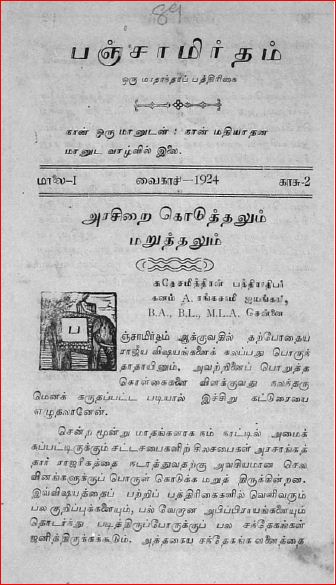 89
பஞ்சாமிர்தம்
ஒரு மாதாந்தரப் பத்திரிகை
நான் ஒரு மானுடன் ! நான் மதியாதன
மானுட வாழ்வில் இலை.
மாலை–I வைகாசி–1924 காசு-2
அரசிறை கொடுத்தலும்
மறுத்தலும்
சுதேசமித்திரன் பத்திராதிபர்
கனம் A. ரங்கசாமி ஐயங்கார்,
B.A., B.L., M.L.A. சென்னை
ப
ஞ்சாமிர்தம் ஆக்குவதில் தற்போதைய
ராஜீய விஷயங்களைக் கலப்பது பொருந்
தாதாயினும், அவற்றினைப் பொறுத்த
கொள்கைகளை விளக்குவது நலந்தரு
மெனக் கருதப்பட்ட படியால் இச்சிறு கட்டுரையை
எழுதலானேன்.
சென்ற மூன்று மாதங்களாக நம் நாட்டில் அமைக்
கப்பட்டிருக்கும் சட்டசபைகளிற் சிலசபைகள் அரசாங்கத்
தார் ராஜரிகத்தை நடாத்துவதற்கு அவசியமான செல
வினங்களுக்குப் பொருள் கொடுக்க மறுத் திருக்கின்றன.
இவ்விஷயத்தைப் பற்றிப் பத்திரிகைகளில் வெளிவரும்
பல குறிப்புக்களையும், பல வேறான அபிப்பிராயங்களையும்
தொடர்ந்து படித்திருப்போருக்குப் பல சந்தேகங்கள்
ஜனித்திருக்கக்கூடும். அத்தகைய சந்தேகங்களனைத்தை